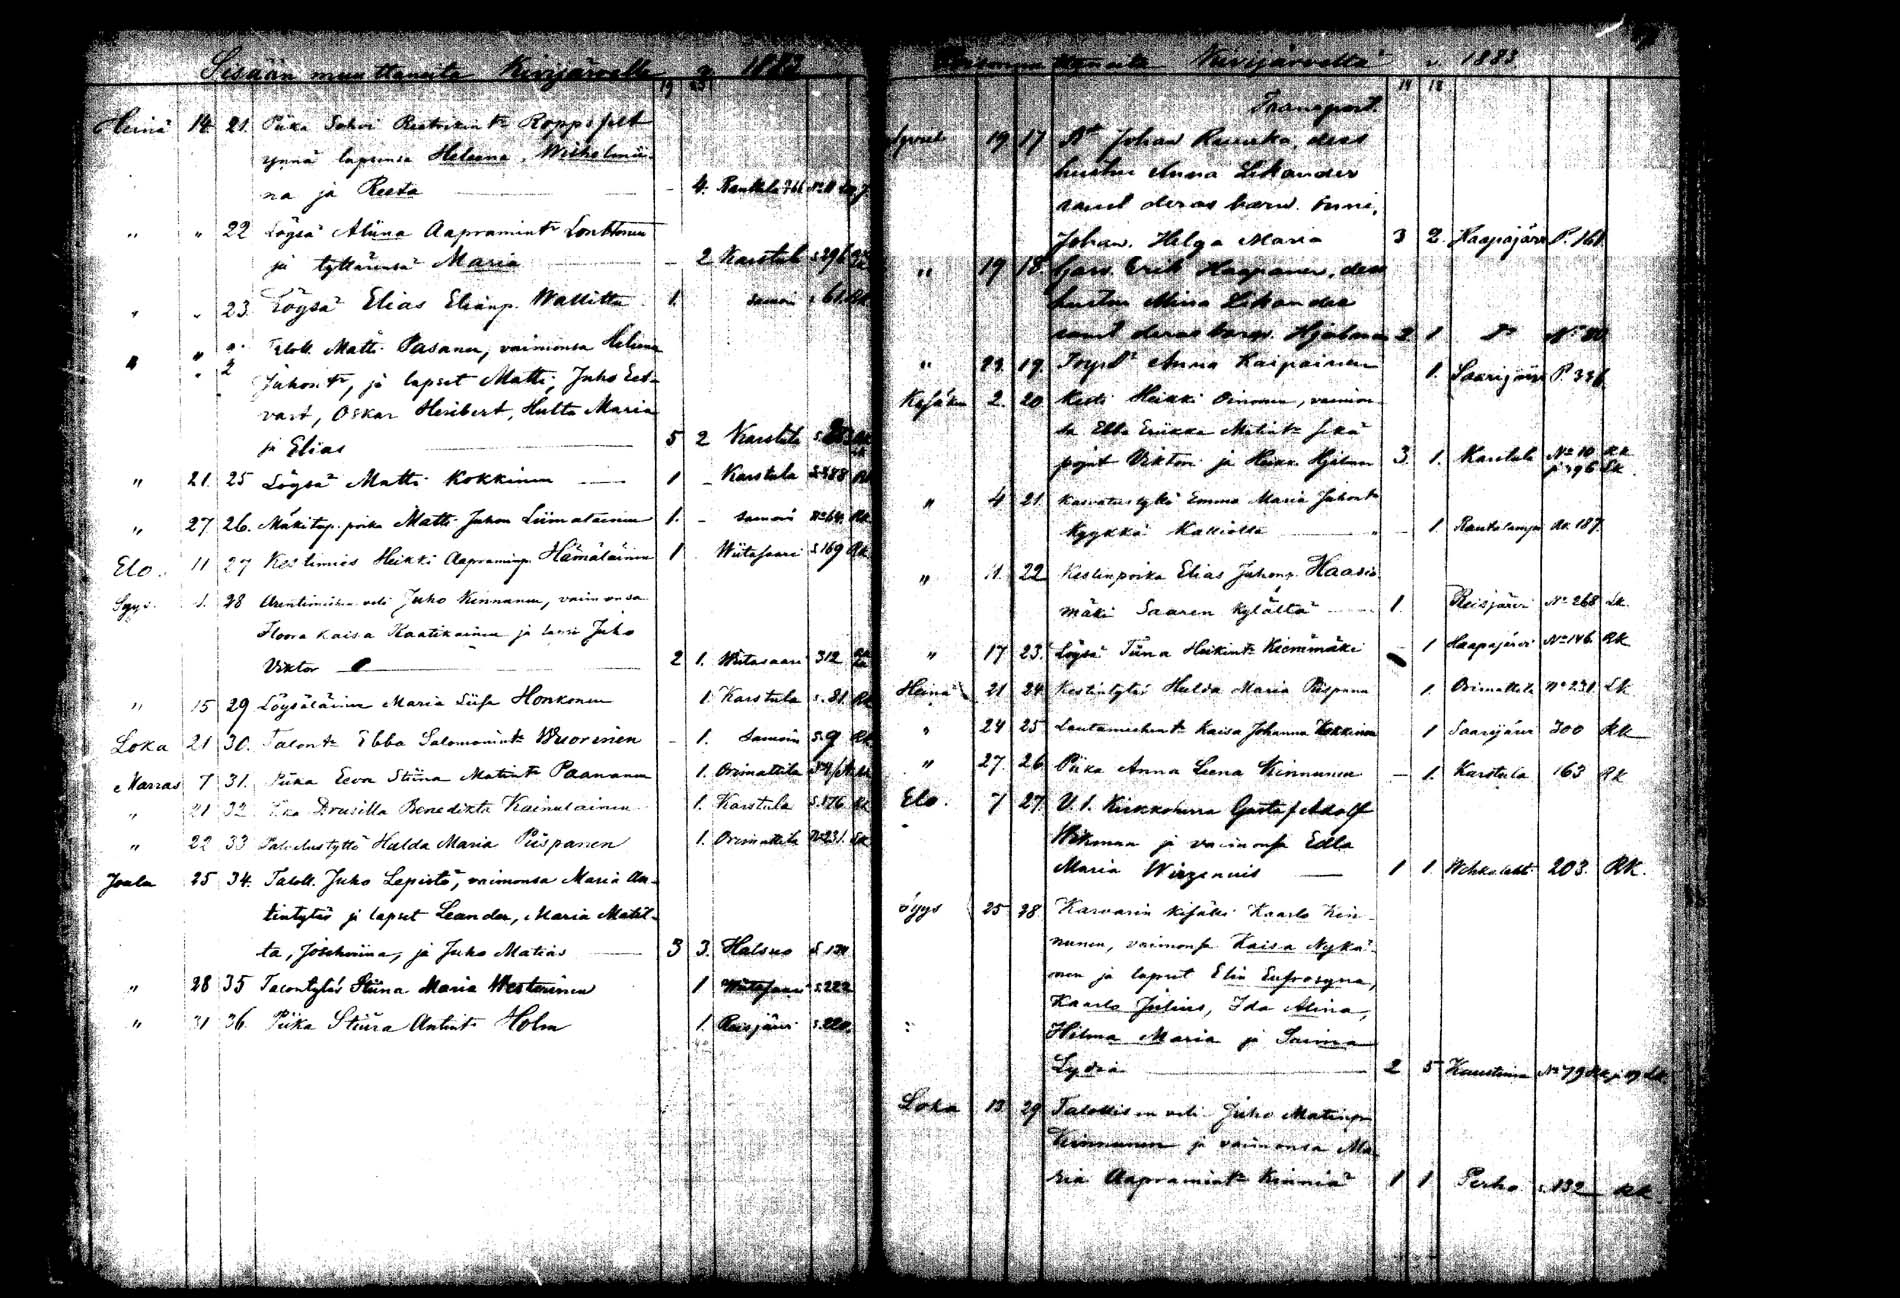 Sisään muuttaneita Kivijärvelle v. 1883
19 23
Heinä 14 21. Piika Sohvi
ynnä lapsensa Heleena, Wilhelmii-
na ja Reeta — 4.
" " 22 Löysä Aliina Aapramint:
ja tyttärensä Maria — 2 Karstula s. 296
" " 23. Löysä Elias Eliänp. 1. samoin s. 61. Rk
" " Taloll. Matti Pasanen, vaimonsa Helena
Juhont:, ja lapset Matti, Juho Eed-
vart, Oskar Heribert, Hulta Maria
ja Elias 5 2 Karstula
" 21. 25 Löysä Matti Kokkinen 1 – Karstula s. 388 Rk
" 27 26. Mäkitup. poika Matti Juhon Liimatainen 1. – samoin No 64. Rk
Elo. 11 27 Kestimies Heikki Aapraminp. Hämäläinen 1 Wiitasaari s. 169 Rk
Syys. 1. 28 veli Juho Kinnunen, vaimonsa
Floora Kaisa Raatikainen ja lapsi Juho
Viktor 2 1. Wiitasaari 312
" 15 29 Löysäläinen Maria Liisa Honkonen 1. Karstula s. 81. Rk
Loka 21 30. Talont: Ebba Salomonint: Wuorinen – 1. Samoin s. 9 Rk
Marras 7 31. Piika Eeva Stiina Matint: Paananen 1. Orimattila
" 21 32 Piika Drusilla Benedikta Kainulainen 1. Karstula s. 176 Rk
" 22 33 Palvelustyttö Hulda Maria Piispanen 1. Orimattila No 231. Lk
Joulu 25 34. Taloll. Juho Lepistö, vaimonsa Maria An-
tintytär ja lapset Leander, Maria Matil-
ta, Josehviina, ja Juho Matias 3 3. Halsua
" 28 35 Talontytär Stiina Maria Westerinen 1 Wiitasaari s. 222
" 31 36. Piika Stiina Antint: Holm 1. Reisjärvi s. 220.
Kivijärveltä v. 1883
19 18
Transport.
19 17 Johan Ruuska, dess
hustru Anna Likander
samt deras barn.
Johan. Helga Maria 3 2. Haapajärvi P. 161
" 19 18. Erik Haapanen, dess
hustru Miina Likander
samt deras barn. Hjalmar 2 1. Do No 80
" 23. 19. Anna Kaipainen 1. Saarijärvi P. 336
Kesäku 2. 20 Kesti Heikki Oinonen, vaimon-
sa Ebba Erikka Matint: sekä
pojat Viktori ja Heikk. Hjalmar 3. 1. Karstula No 10 Rk
ja 396 Lk
" 4 21. Kasvatustyttö Emma Maria Juhont:
Kyykkä Kalliolta – 1. Rautalampi Rk 187.
" 11. 22 Kestinpoika Elias Juhonp. Haasia-
mäki Saaren kylältä 1. Reisjärvi No 268 Lk.
" 17 23. Löysä Tiina Heikint: Kiemmäki – 1 Haapajärvi No 146 Rk
Heinä 21 24. Kestintytär Hulda Maria Piispanen 1. Orimattila No 231 Lk
" 24 25 Lautamiehent: Kaisa Johanna Kokkinen 1 Saarijärvi 300 Rk
" 27. 26 Piika Anna Leena Kinnunen – 1. Karstula 163 Rk
Elo. 7 27. V. t. Kirkkoherra Gustaf Adolf
Wikman ja vaimonsa Edla
Maria Wirzenius 1 1. Wehkalahti 203. RK.
Syys 25 28 Karvarin kisälli Kaarlo Kin-
nunen, vaimonsa Kaisa Nykä-
nen ja lapset Elin Eufrosyna,
Kaarlo Julius, Ida Alina,
Hilma Maria ja Saima
Lydia 2 5 Kaustinen No 79 Rk ja 19 Lk
Loka 13 29 Talollisen veli Juho Matinp.
Kinnunen ja vaimonsa Ma-
ria Aapramint: Kinniä 1 1. Perho s. 132 Rk